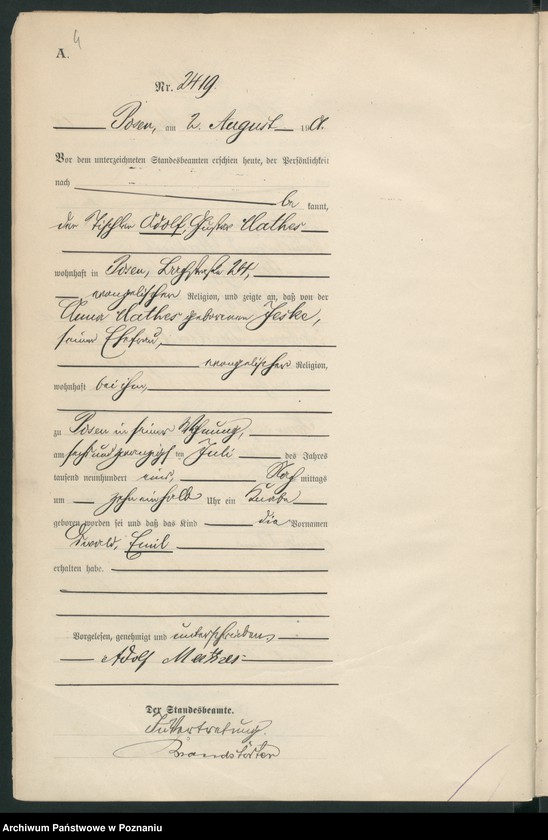 A. 4
Nr. 2419.
Posen, am 2. August 1901.
Vor dem unterzeichneten Standesbeamten erschien heute, der Persönlichkeit
nach
be kannt,
der Tischler Adolf, Gustav Mathes
wohnhaft in Posen, 24,
evangelischer Religion, und zeigte an, daß von der
Anna Mathes geborenen Jeske,
seiner Ehefrau,
evangelischer Religion,
wohnhaft bei ihm,
zu Posen in seiner Wohnung,
am sechsundzwanzigsten Juli des Jahres
tausend neunhundert eins, Nach mittags
um zehneinhalb Uhr ein Knabe
geboren worden sei und daß das Kind die Vornamen
Oswald, Emil
erhalten habe.
Vorgelesen, genehmigt und unterschrieben
Adolf Mathes
Der Standesbeamte.
In Vertretung.
Brandstäter
Archiwum Państwowe w Poznaniu